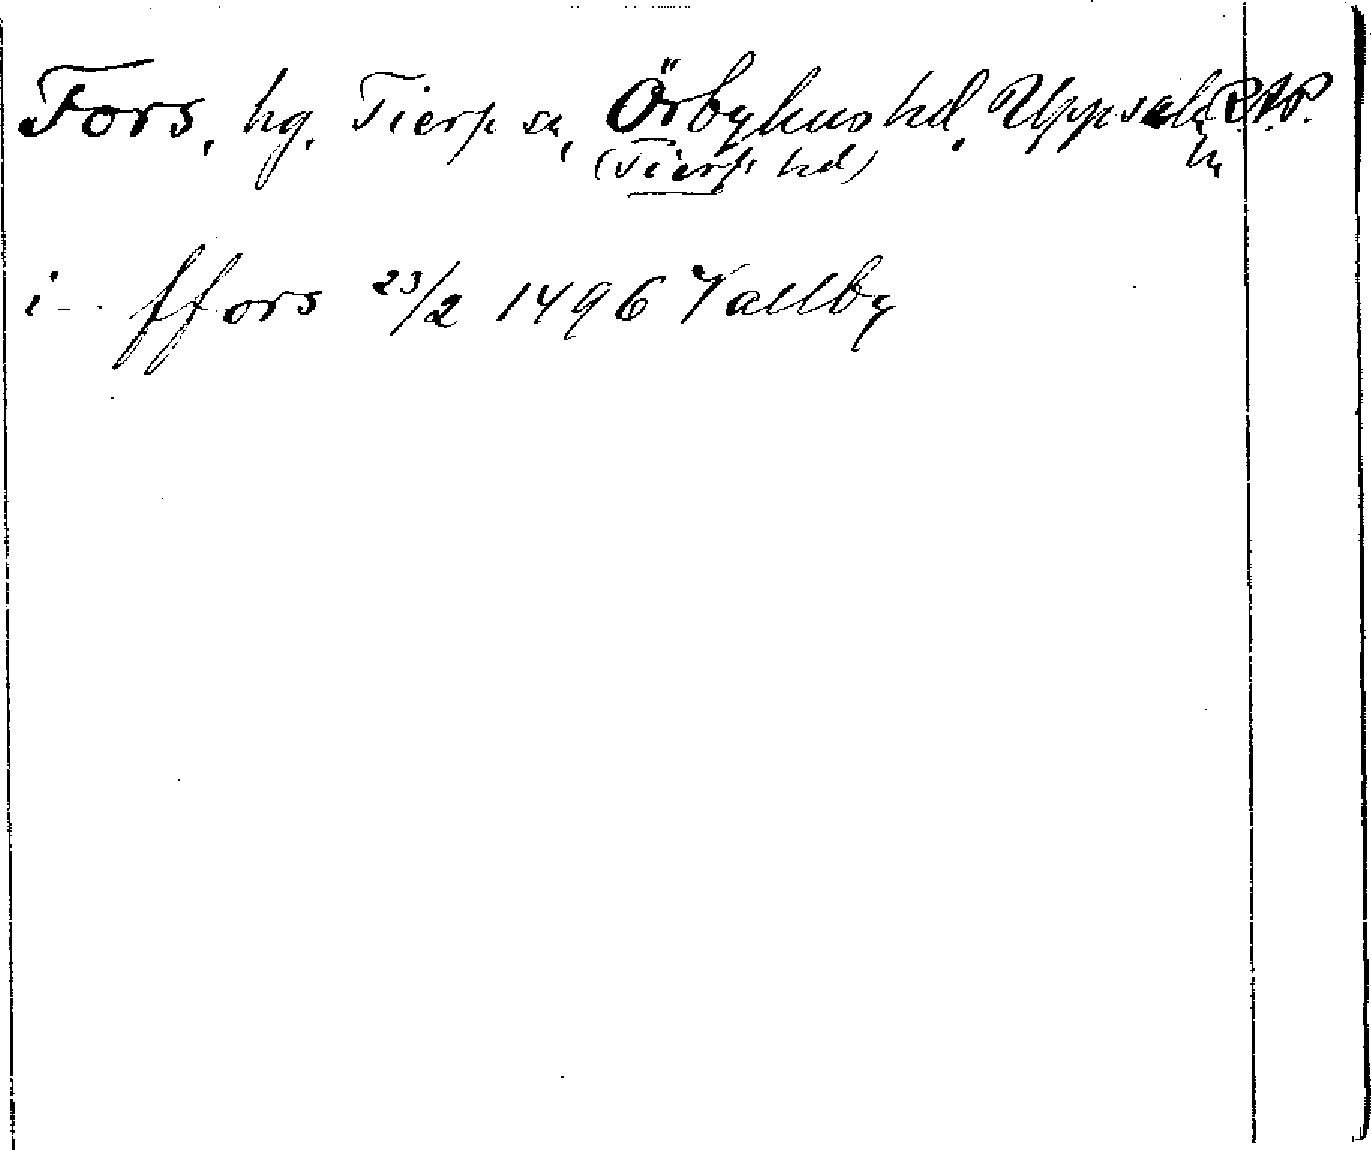 Fors, hg. Tierp sn, Örbyhus hd. Uppsala R.A.P.
(Tierps hd) ln
i - - ffors 23/2 1496 Vallby